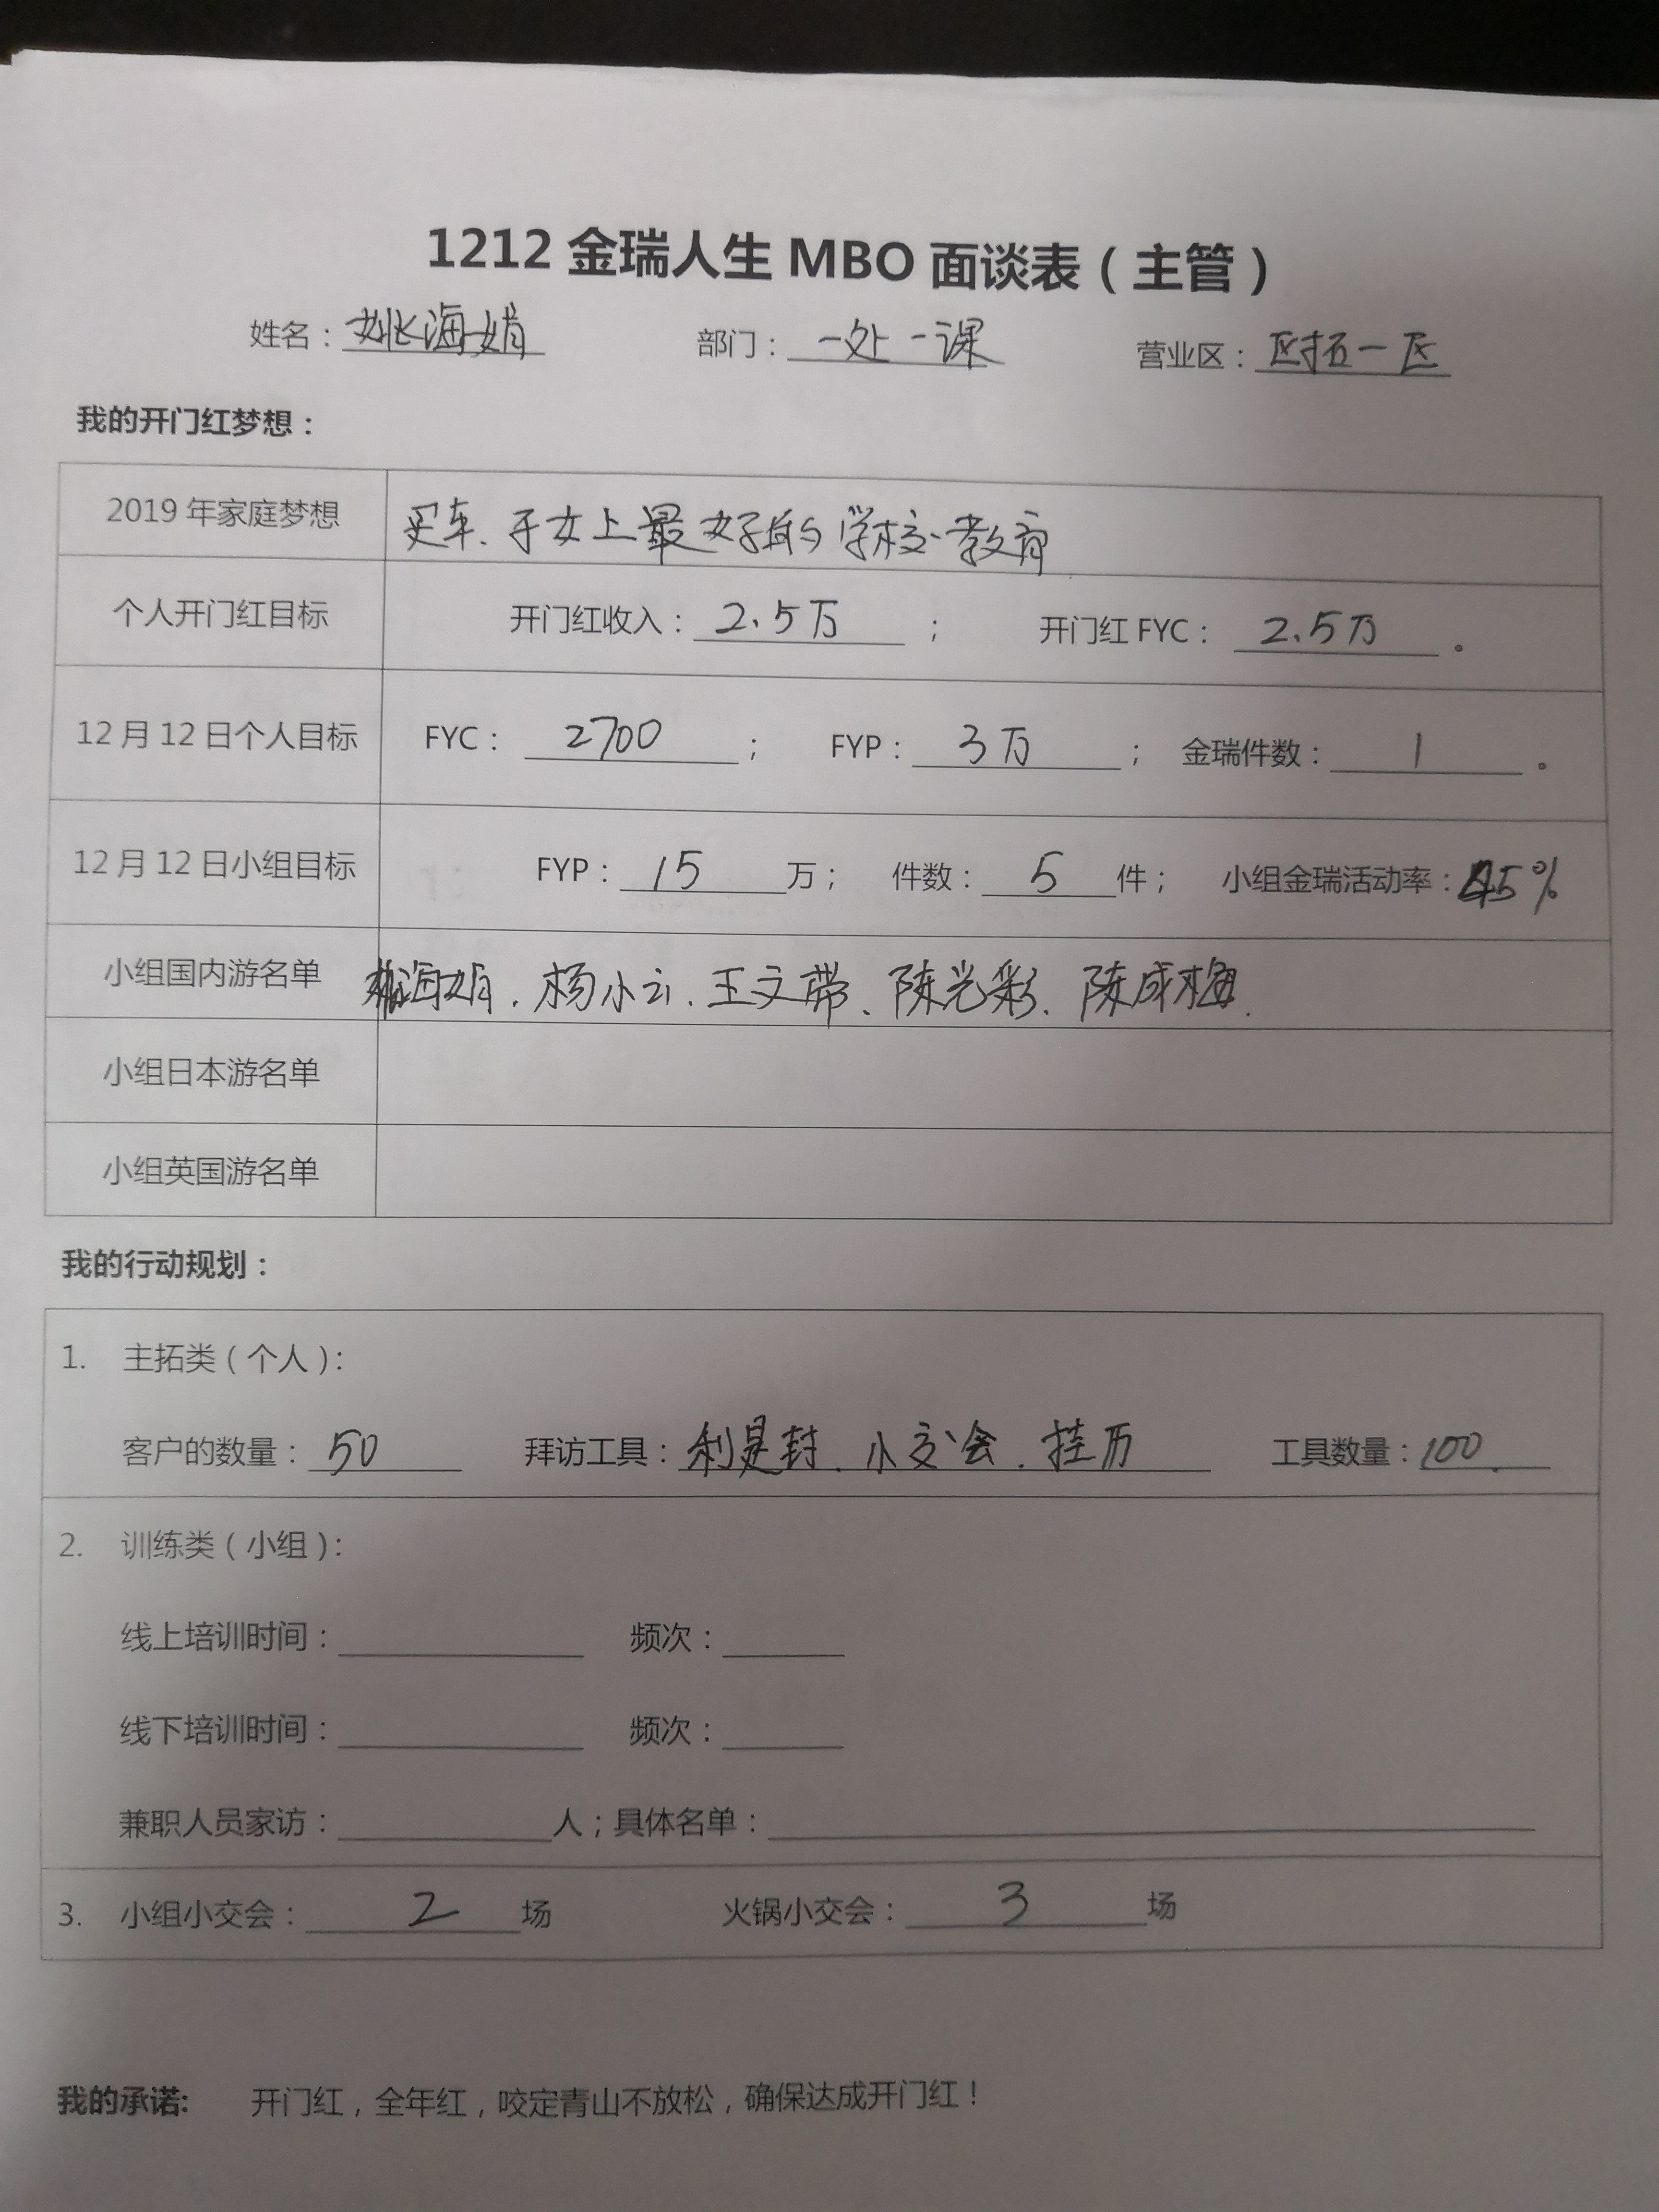 1212 金瑞人生 MBO 面谈表（主管）
姓名：姚海娟 部门：一处一课 营业区：区拓一区
我的开门红梦想：
2019 年家庭梦想 买车、子女上最好的学校教育
个人开门红目标 开门红收入：2.5万； 开门红 FYC：2.5万。
12 月 12 日个人目标 FYC：2700； FYP：3万； 金瑞件数：1。
12 月 12 日小组目标 FYP：15万； 件数：5件； 小组金瑞活动率：45%
小组国内游名单 姚海娟、杨小云、王文带、陈光彩、陈成梅
小组日本游名单
小组英国游名单
我的行动规划：
1. 主拓类（个人）：
客户的数量：50 拜访工具：利是封、小交会、挂历 工具数量：100
2. 训练类（小组）：
线上培训时间： 频次：
线下培训时间： 频次：
兼职人员家访： 人；具体名单：
3. 小组小交会：2 场 火锅小交会：3 场
我的承诺: 开门红，全年红，咬定青山不放松，确保达成开门红！